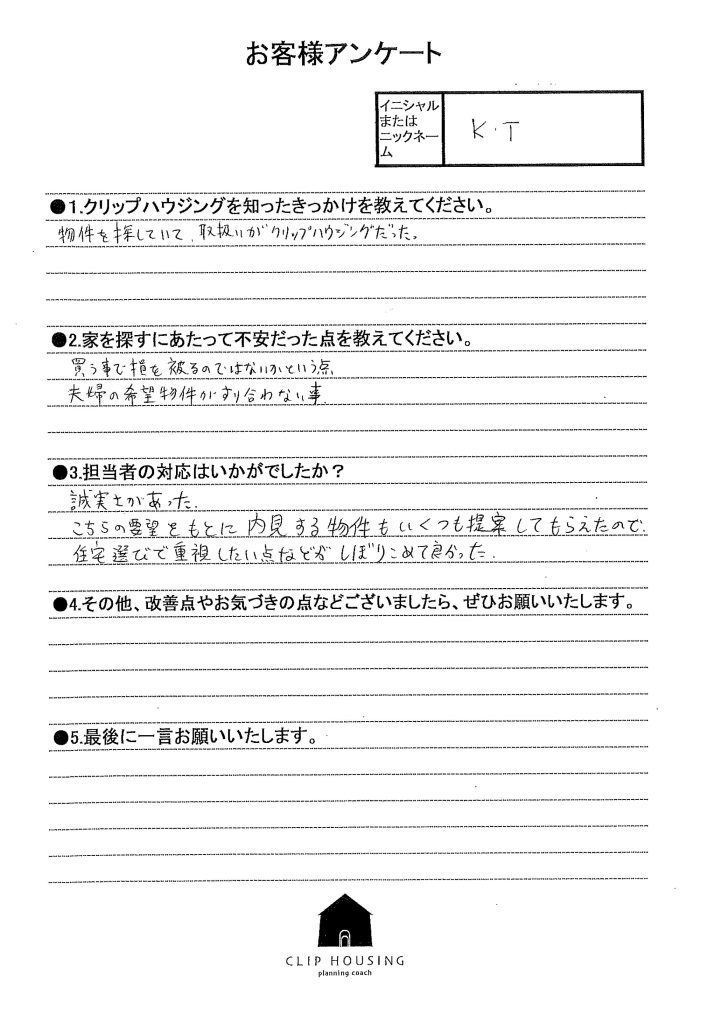 お客様アンケート
イニシャル
または
ニックネー
ム
K・T
●1.クリップハウジングを知ったきっかけを教えてください。
物件を探していて、取扱いがクリップハウジングだった。
●2.家を探すにあたって不安だった点を教えてください。
買う事で損を被るのではないかという点、
夫婦の希望物件がすり合わない事.
●3.担当者の対応はいかがでしたか？
誠実さがあった.
こちらの要望をもとに内見する物件もいくつも提案してもらえたので、
住宅選びで重視したい点などがしぼりこめて良かった.
●4.その他、改善点やお気づきの点などございましたら、ぜひお願いいたします。
●5.最後に一言お願いいたします。
CLIP HOUSING
planning coach